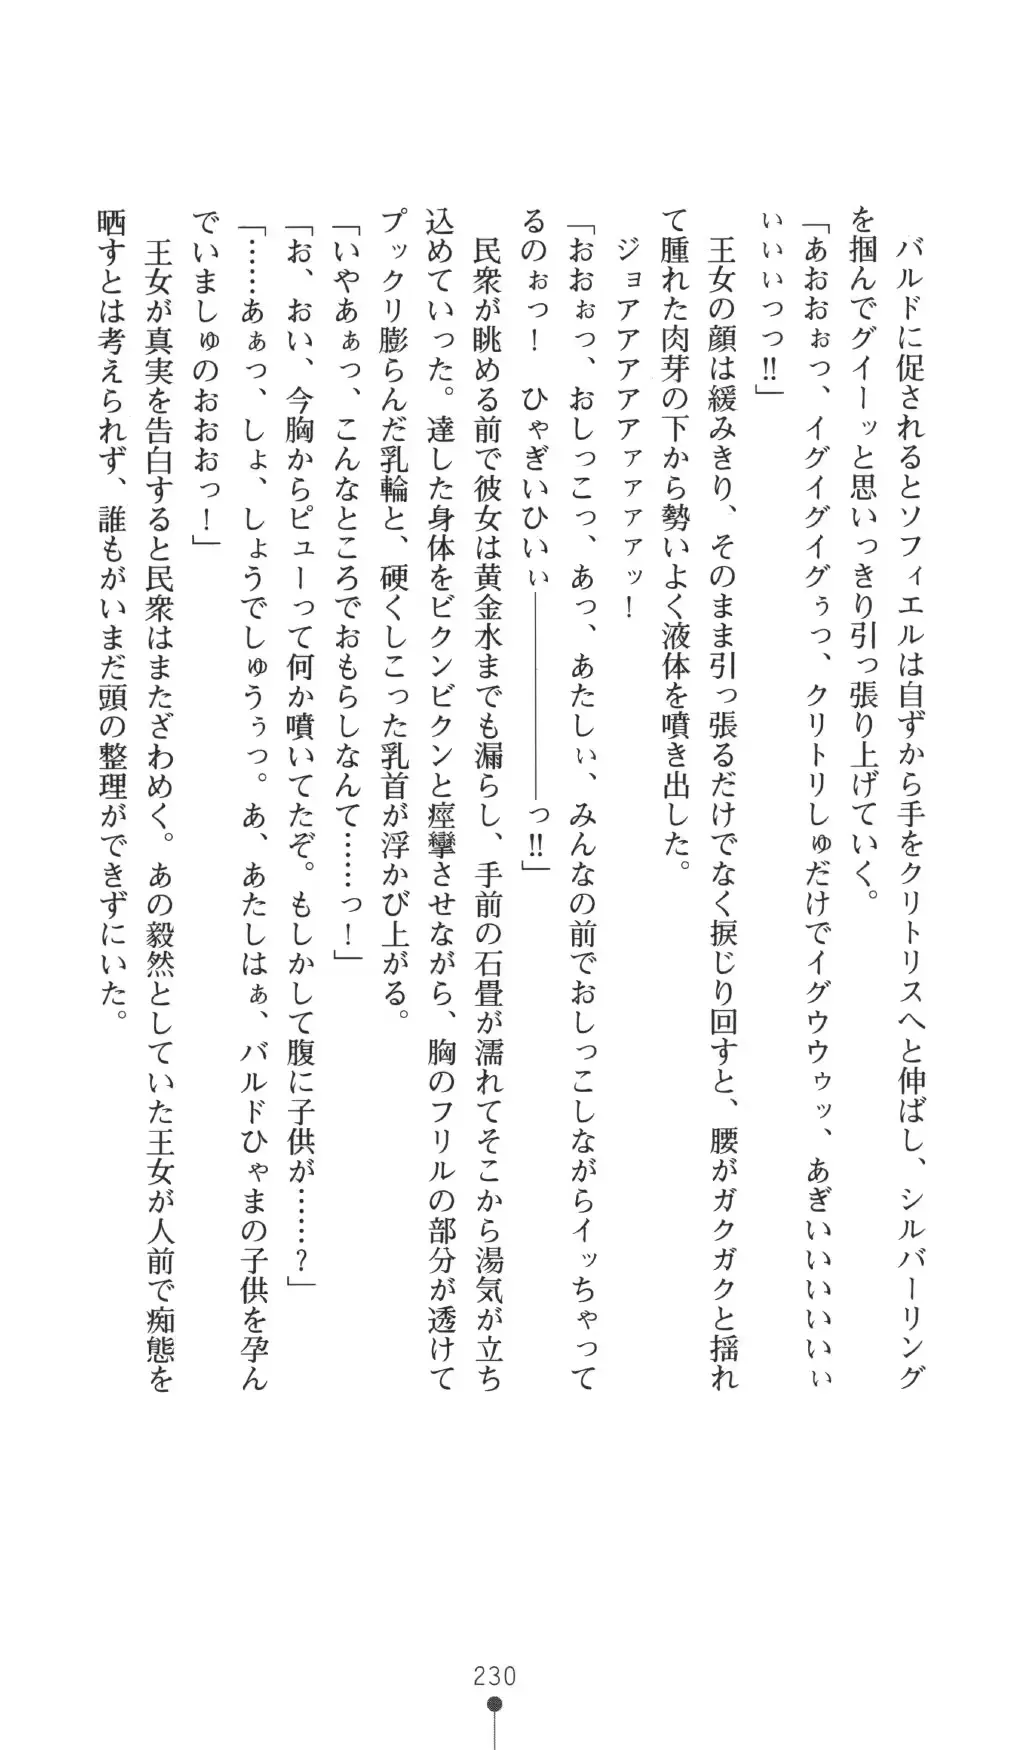 バルドに促されるとソフィエルは自ずから手をクリトリスへと伸ばし、シルバーリング
を掴んでグイーッと思いっきり引っ張り上げていく。
「あおおぉっ、イグイグイグぅっ、クリトリしゅだけでイグウウゥッ、あぎいいいいいぃ
ぃぃぃっっ!!」
王女の顔は緩みきり、そのまま引っ張るだけでなく捩じり回すと、腰がガクガクと揺れ
て腫れた肉芽の下から勢いよく液体を噴き出した。
ジョアアアアアァァァァッ！
「おおぉっ、おしっこっ、あっ、あたしぃ、みんなの前でおしっこしながらイッちゃって
るのぉっ！　ひゃぎいひいぃ――――――っ!!」
民衆が眺める前で彼女は黄金水までも漏らし、手前の石畳が濡れてそこから湯気が立ち
込めていった。達した身体をビクンビクンと痙攣させながら、胸のフリルの部分が透けて
プックリ膨らんだ乳輪と、硬くしこった乳首が浮かび上がる。
「いやあぁっ、こんなところでおもらしなんて……っ！」
「お、おい、今胸からピューって何か噴いてたぞ。もしかして腹に子供が……？」
「……あぁっ、しょ、しょうでしゅうぅっ。あ、あたしはぁ、バルドひゃまの子供を孕ん
でいましゅのおおおっ！」
王女が真実を告白すると民衆はまたざわめく。あの毅然としていた王女が人前で痴態を
晒すとは考えられず、誰もがいまだ頭の整理ができずにいた。
230